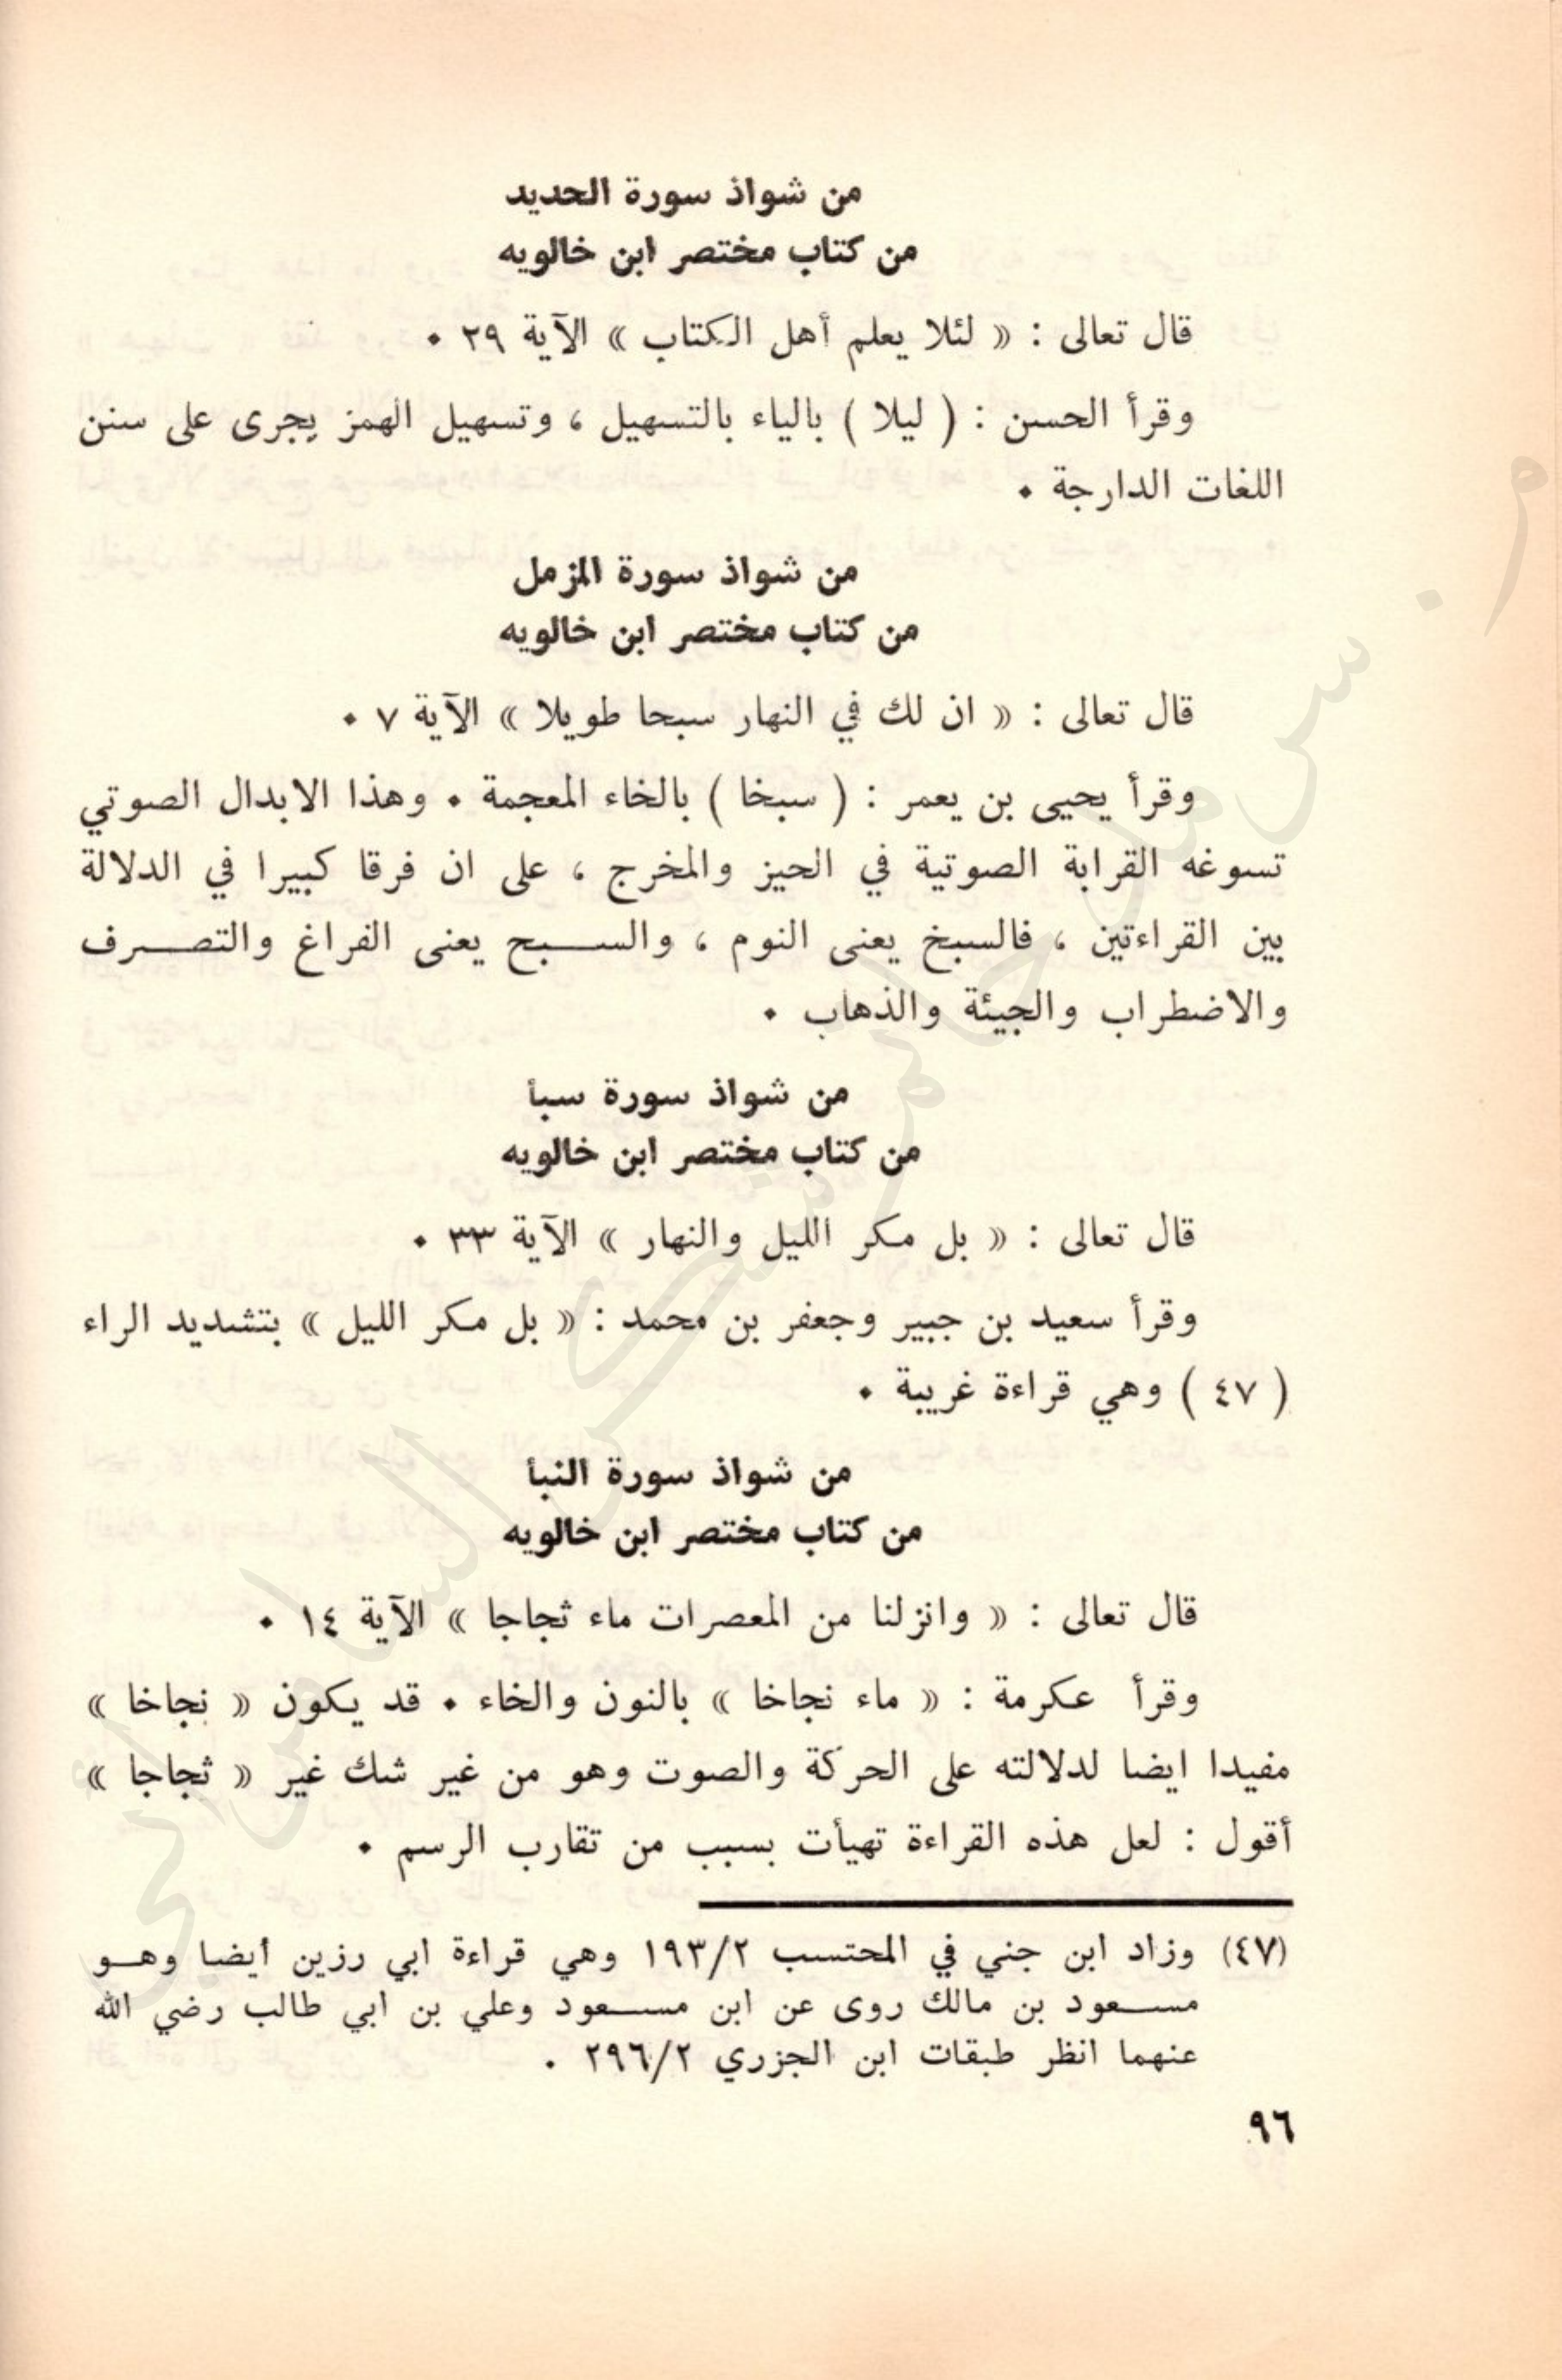 من شواذ سورة الحديد
من كتاب مختصر ابن خالويه
قال تعالى : « لئلا يعلم أهل الكتاب » الآية ٢٩ ٠
وقرأ الحسن : ( ليلا ) بالياء بالتسهيل ، وتسهيل الهمز يجرى على سنن
اللغات الدارجة ٠
من شواذ سورة المزمل
من كتاب مختصر ابن خالويه
قال تعالى : « ان لك في النهار سبحا طويلا » الآية ٧ ٠
وقرأ يحيى بن يعمر : ( سبخا ) بالخاء المعجمة ٠ وهذا الابدال الصوتي
تسوغه القرابة الصوتية في الحيز والمخرج ، على ان فرقا كبيرا في الدلالة
بين القراءتين ، فالسبخ يعنى النوم ، والســـبح يعنى الفراغ والتصـــرف
والاضطراب والجيئة والذهاب ٠
من شواذ سورة سبأ
من كتاب مختصر ابن خالويه
قال تعالى : « بل مكر الليل والنهار » الآية ٣٣ ٠
وقرأ سعيد بن جبير وجعفر بن محمد : « بل مكر الليل » بتشديد الراء
( ٤٧ ) وهي قراءة غريبة ٠
من شواذ سورة النبأ
من كتاب مختصر ابن خالويه
قال تعالى : « وانزلنا من المعصرات ماء ثجاجا » الآية ١٤ ٠
وقرأ عكرمة : « ماء نجاخا » بالنون والخاء ٠ قد يكون « نجاخا »
مفيدا ايضا لدلالته على الحركة والصوت وهو من غير شك غير « ثجاجا »
أقول : لعل هذه القراءة تهيأت بسبب من تقارب الرسم ٠
(٤٧) وزاد ابن جني في المحتسب ١٩٣/٢ وهي قراءة ابي رزين ايضا وهــو
مســعود بن مالك روى عن ابن مســعود وعلي بن ابي طالب رضي الله
عنهما انظر طبقات ابن الجزري ٢٩٦/٢ .
٩٦